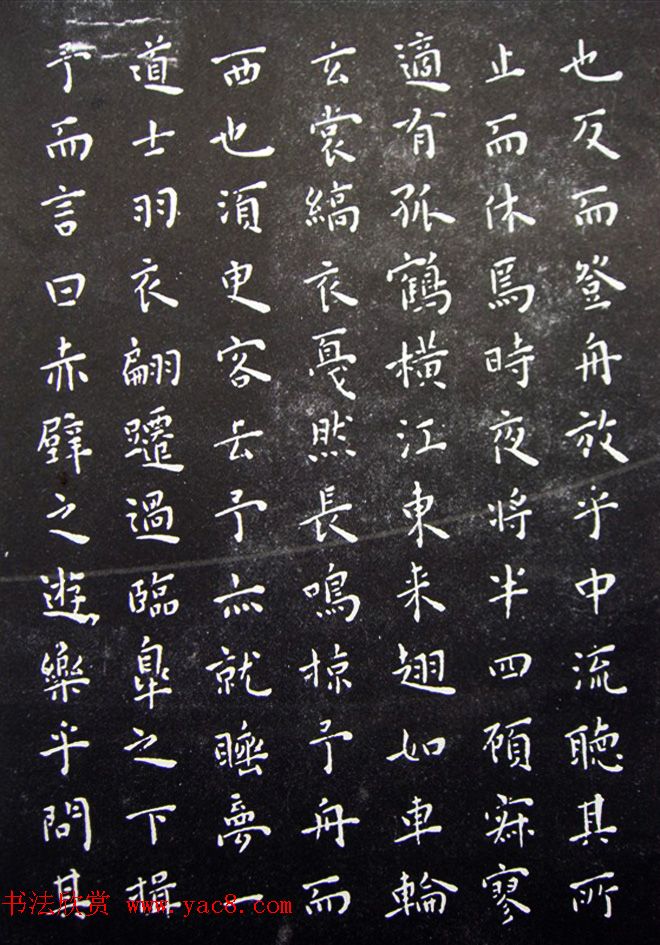 也反而登舟放乎中流聽其所
止而休焉時夜将半四顧寂寥
適有孤鶴橫江東来翅如車輪
玄裳縞衣戛然長鳴掠予舟而
西也須臾客去予亦就睡夢一
道士羽衣翩躚過臨皋之下揖
予而言曰赤壁之遊樂乎問其
书法欣赏 www.yac8.com